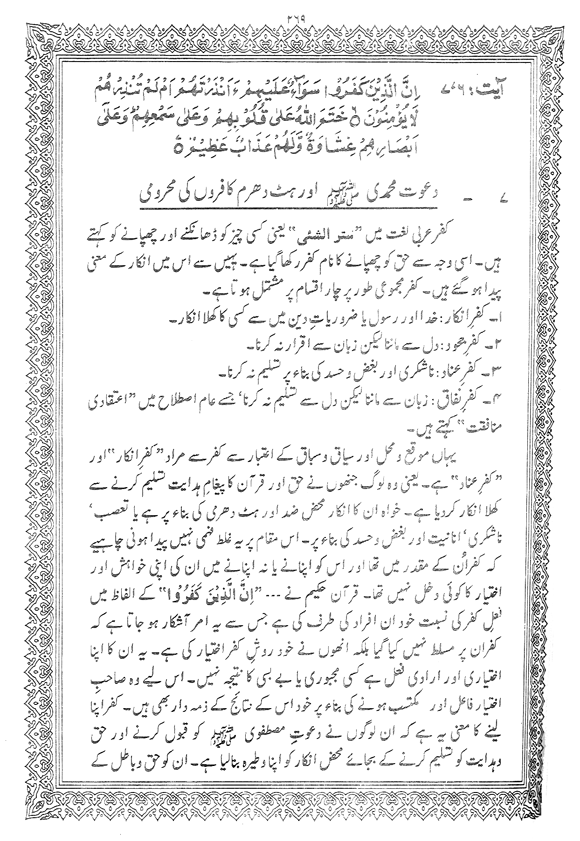 ۲۶۹
آیت: ۷،۶ اِنَّ الَّذِیْنَ کَفَرُوْا سَوَآءٌ عَلَیْهِمْ ءَاَنْذَرْتَهُمْ اَمْ لَمْ تُنْذِرْهُمْ
لَا یُؤْمِنُوْنَ ۝ خَتَمَ اللّٰهُ عَلٰی قُلُوْبِهِمْ وَعَلٰی سَمْعِهِمْ وَعَلٰی
اَبْصَارِهِمْ غِشَاوَةٌ وَّلَهُمْ عَذَابٌ عَظِیْمٌ ۝
۷ - دعوت محمدی ﷺ اور ہٹ دھرم کافروں کی محرومی
کفر عربی لغت میں ”ستر الشئی“ یعنی کسی چیز کو ڈھانکنے اور چھپانے کو کہتے
ہیں۔ اسی وجہ سے حق کو چھپانے کا نام کفر رکھا گیا ہے۔ یہیں سے اس میں انکار کے معنی
پیدا ہو گئے ہیں۔ کفر مجموعی طور پر چار اقسام پر مشتمل ہوتا ہے۔
۱۔ کفرِ انکار: خدا اور رسول یا ضروریاتِ دین میں سے کسی کا کھلا انکار۔
۲۔ کفرِ جحود: دل سے ماننا لیکن زبان سے اقرار نہ کرنا۔
۳۔ کفرِ عناد: ناشکری اور بغض و حسد کی بناء پر تسلیم نہ کرنا۔
۴۔ کفرِ نفاق: زبان سے ماننا لیکن دل سے تسلیم نہ کرنا‘ جسے عام اصطلاح میں ”اعتقادی
منافقت“ کہتے ہیں۔
یہاں موقع و محل اور سیاق و سباق کے اعتبار سے کفر سے مراد ”کفرِ انکار“ اور
”کفرِ عناد“ ہے۔ یعنی وہ لوگ جنہوں نے حق اور قرآن کا پیغامِ ہدایت تسلیم کرنے سے
کھلا انکار کر دیا ہے۔ خواہ ان کا انکار محض ضد اور ہٹ دھرمی کی بناء پر ہے یا تعصب‘
ناشکری‘ انانیت اور بغض و حسد کی بناء پر۔ اس مقام پر یہ غلط فہمی نہیں پیدا ہونی چاہیے
کہ کفر اُن کے مقدر میں تھا اور اس کو اپنانے یا نہ اپنانے میں ان کی اپنی خواہش اور
اختیار کا کوئی دخل نہیں تھا۔ قرآن حکیم نے ۔۔۔ ”اِنَّ الَّذِیْنَ کَفَرُوْا“ کے الفاظ میں
فعل کفر کی نسبت خود ان افراد کی طرف کی ہے جس سے یہ امر آشکار ہو جاتا ہے کہ
کفر ان پر مسلط نہیں کیا گیا بلکہ انہوں نے خود روشِ کفر اختیار کی ہے۔ یہ ان کا اپنا
اختیاری اور ارادی فعل ہے کسی مجبوری یا بے بسی کا نتیجہ نہیں۔ اس لیے وہ صاحبِ
اختیار فاعل اور مکتسب ہونے کی بناء پر خود اس کے نتائج کے ذمہ دار بھی ہیں۔ کفر اپنا
لینے کا معنی یہ ہے کہ ان لوگوں نے دعوتِ مصطفوی ﷺ کو قبول کرنے اور حق
و ہدایت کو تسلیم کرنے کے بجائے محض انکار کو اپنا وطیرہ بنا لیا ہے۔ ان کو حق و باطل کے